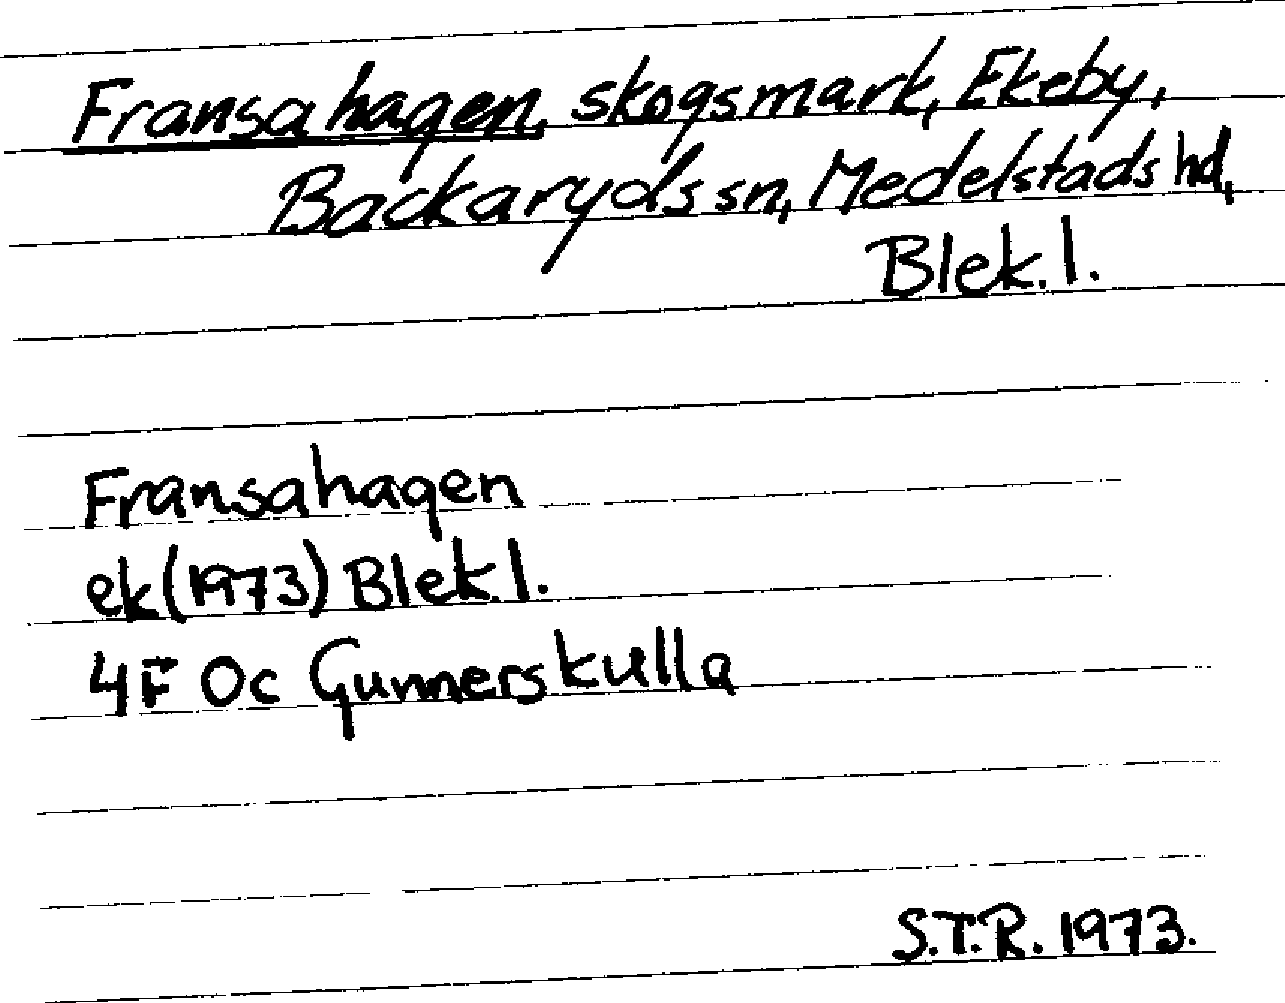 Fransahagen, skogsmark, Ekeby,
Backaryds sn, Medelstads hd,
Blek. l.
Fransahagen
ek (1973) Blek. l.
4F Oc Gunnerskulla
S.T.R. 1973.